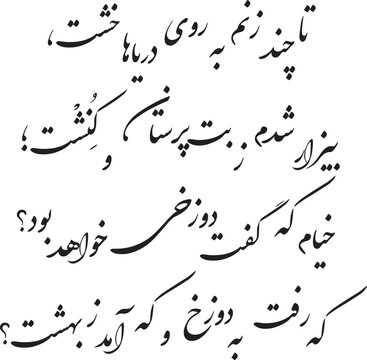 تا چند زنم به روی دریاها خشت،
بیزار شدم ز بت‌پرستان و کُنِشْت؛
خیام که گفت دوزخی خواهد بود؟
که رفت به دوزخ و که آمد ز بهشت؟